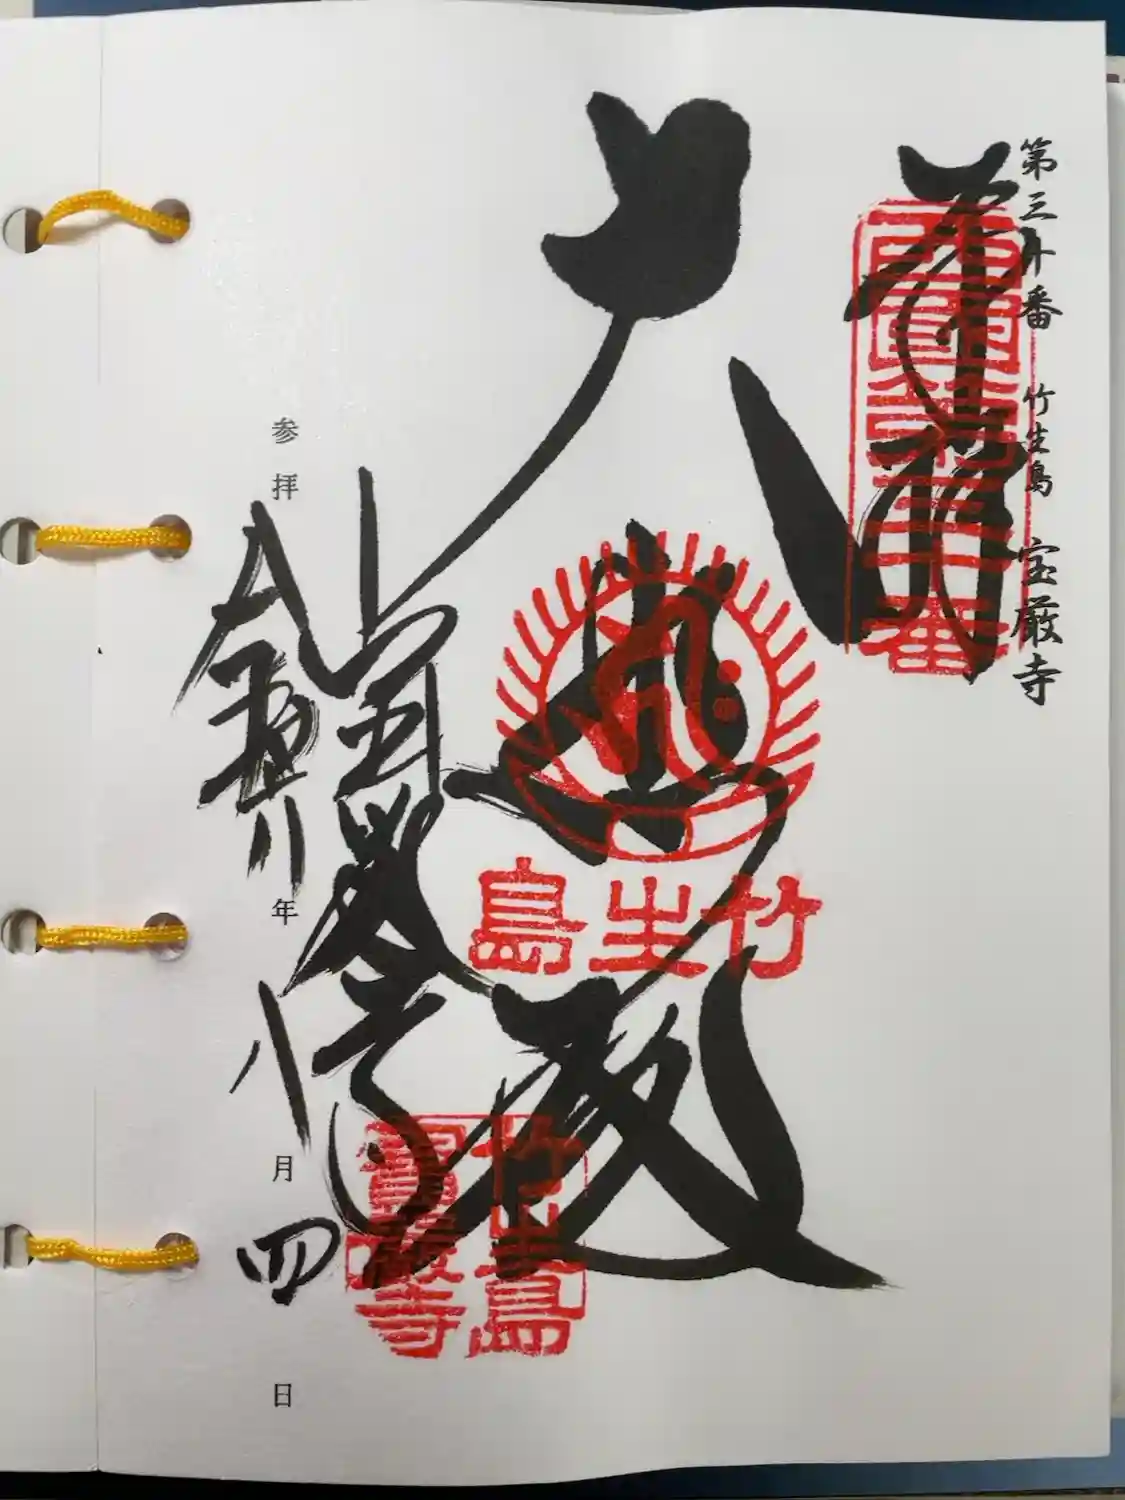 第三十番 竹生島 宝厳寺
奉拝
西國第三十番
大悲殿
竹生島
竹生島
寶厳寺
参拝 令 年 八 月 四 日